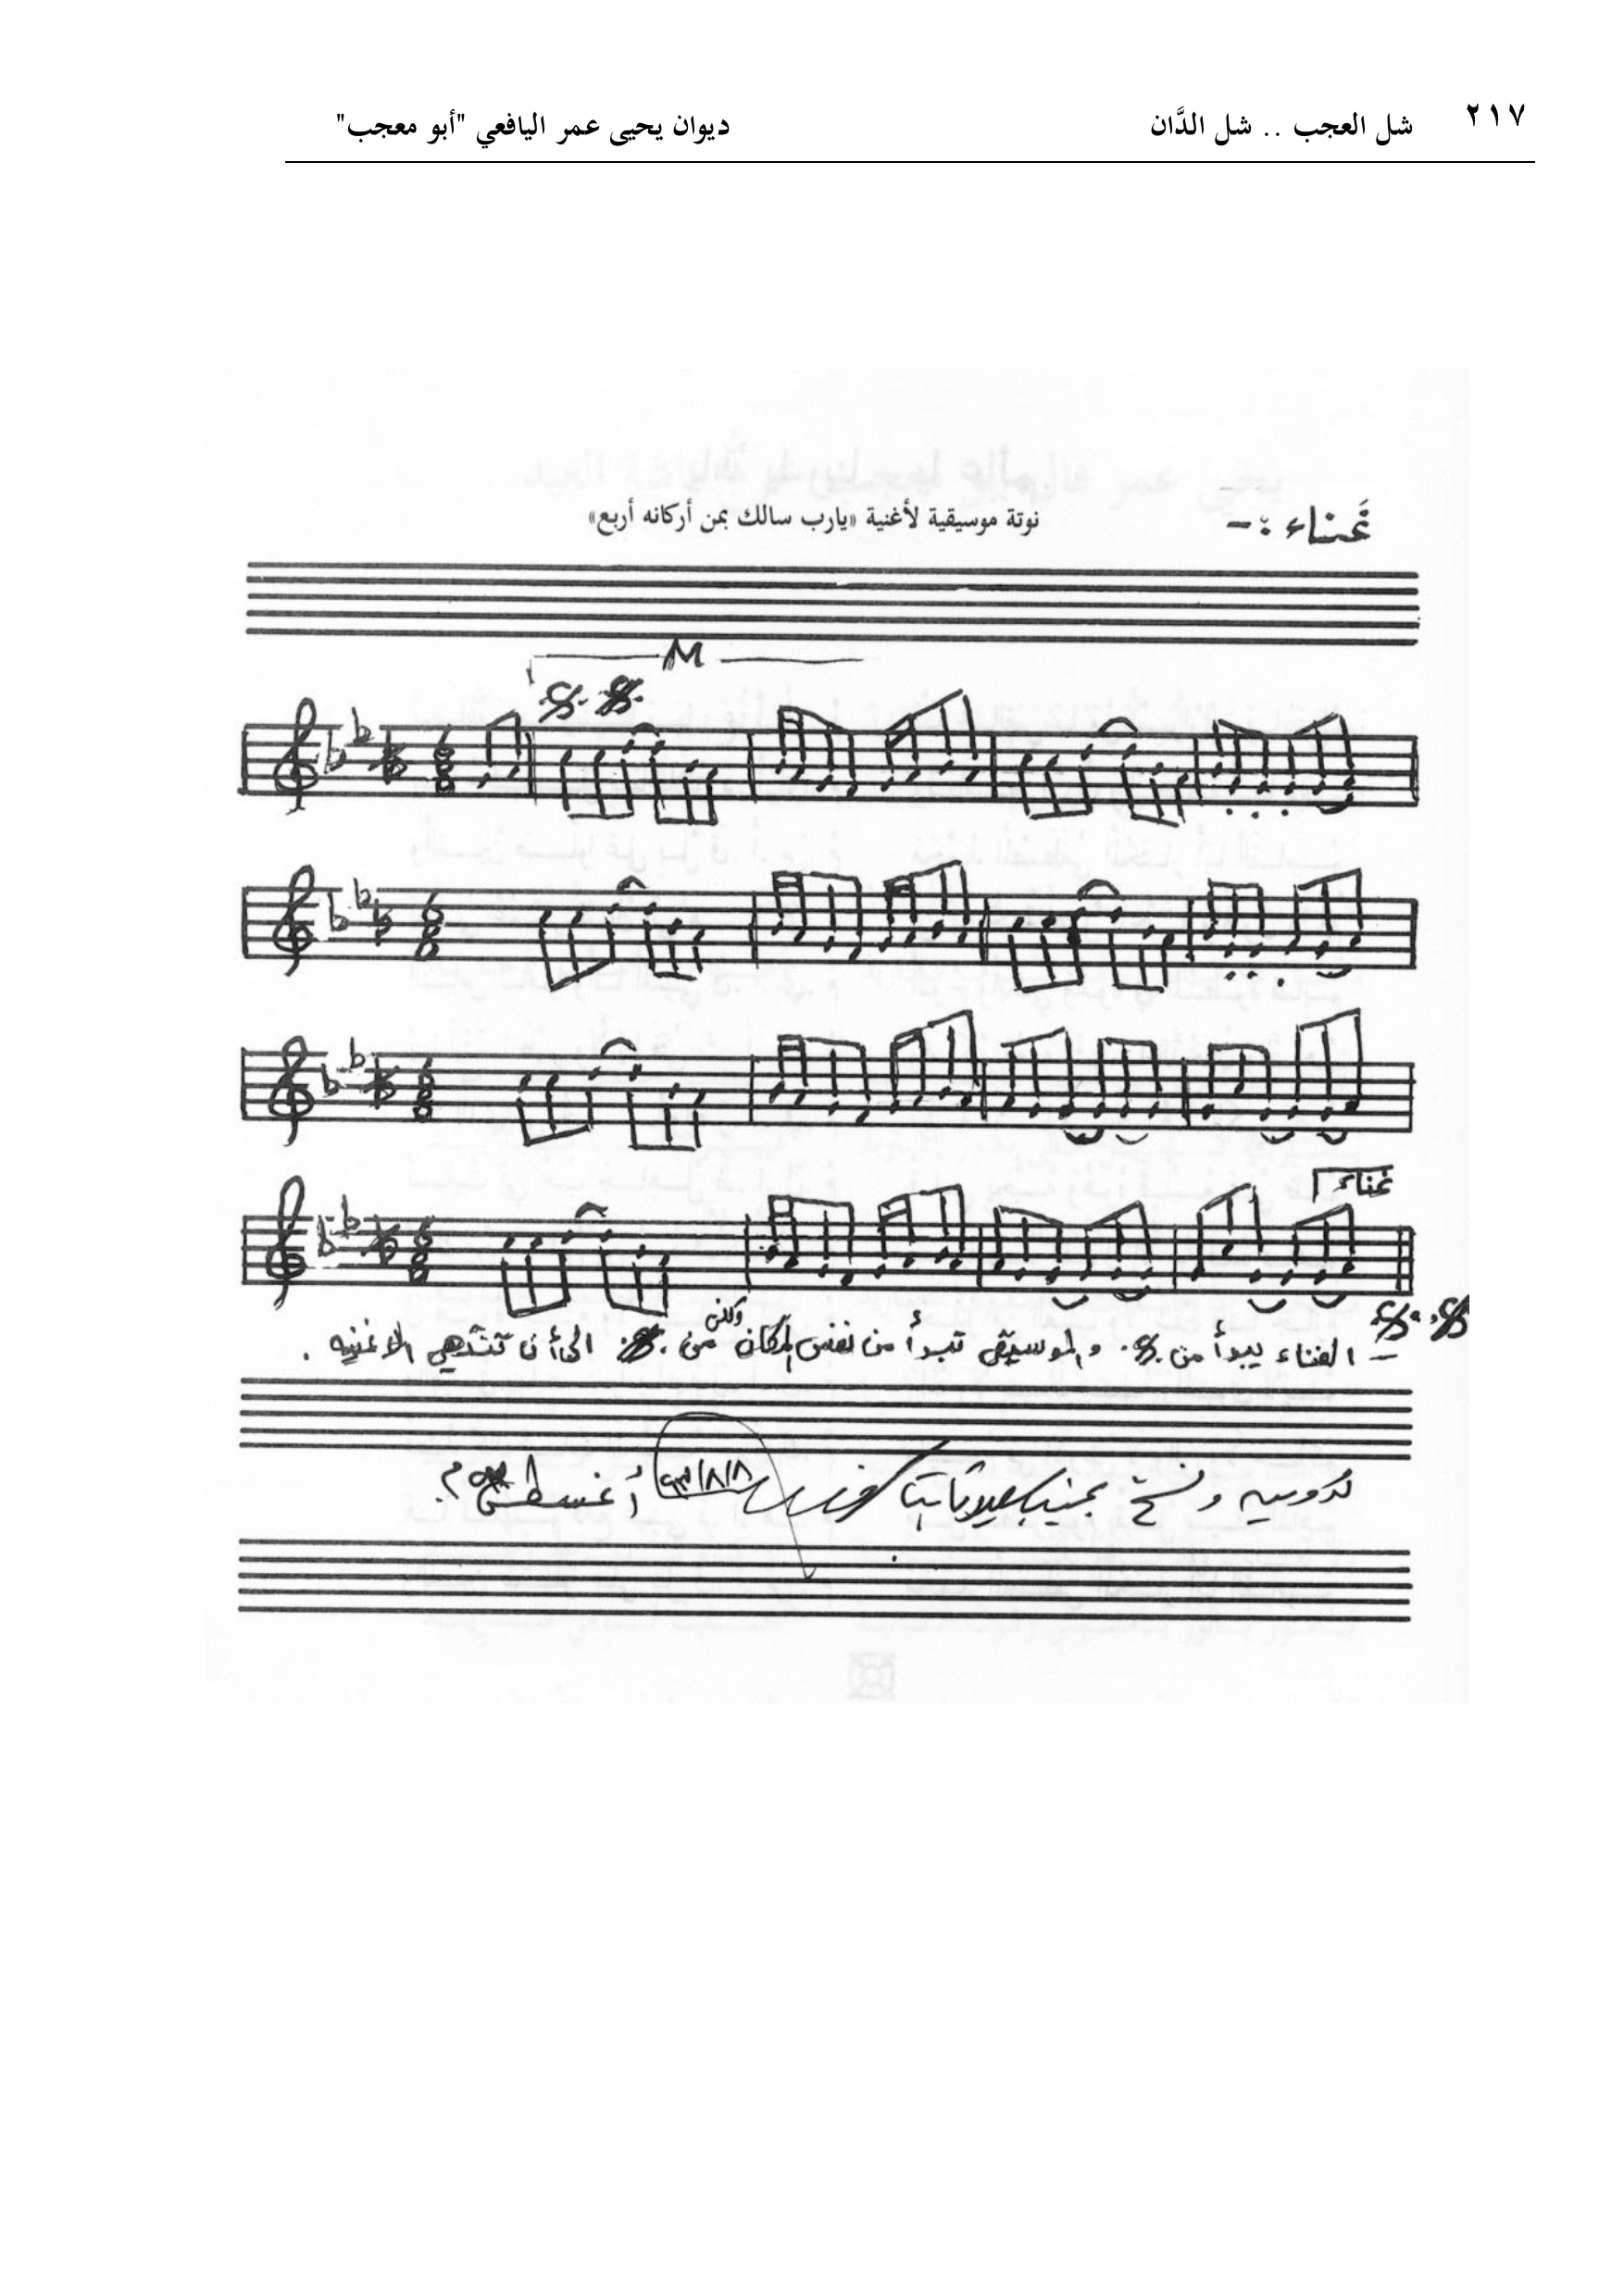 ٢١٧ شل العجب .. شل الدَّان ديوان يحيى عمر اليافعي "أبو معجب"
غناء :-
نوتة موسيقية لأغنية «يارب سالك بمن أركانه أربع»
M
غناء
- الغناء يبدأ من والموسيقى تبدأ من نفس المكان ولكن من الى أن تنتهي الاغنيه .
تدوين ونسخ ٩٣/٨/٨ أغسطس م.